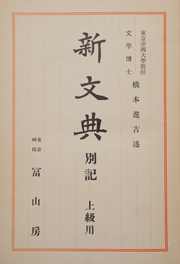 東京帝國大學敎授
文學博士 橋本進吉述
新文典
別記 上級用
東京
神田
冨山房